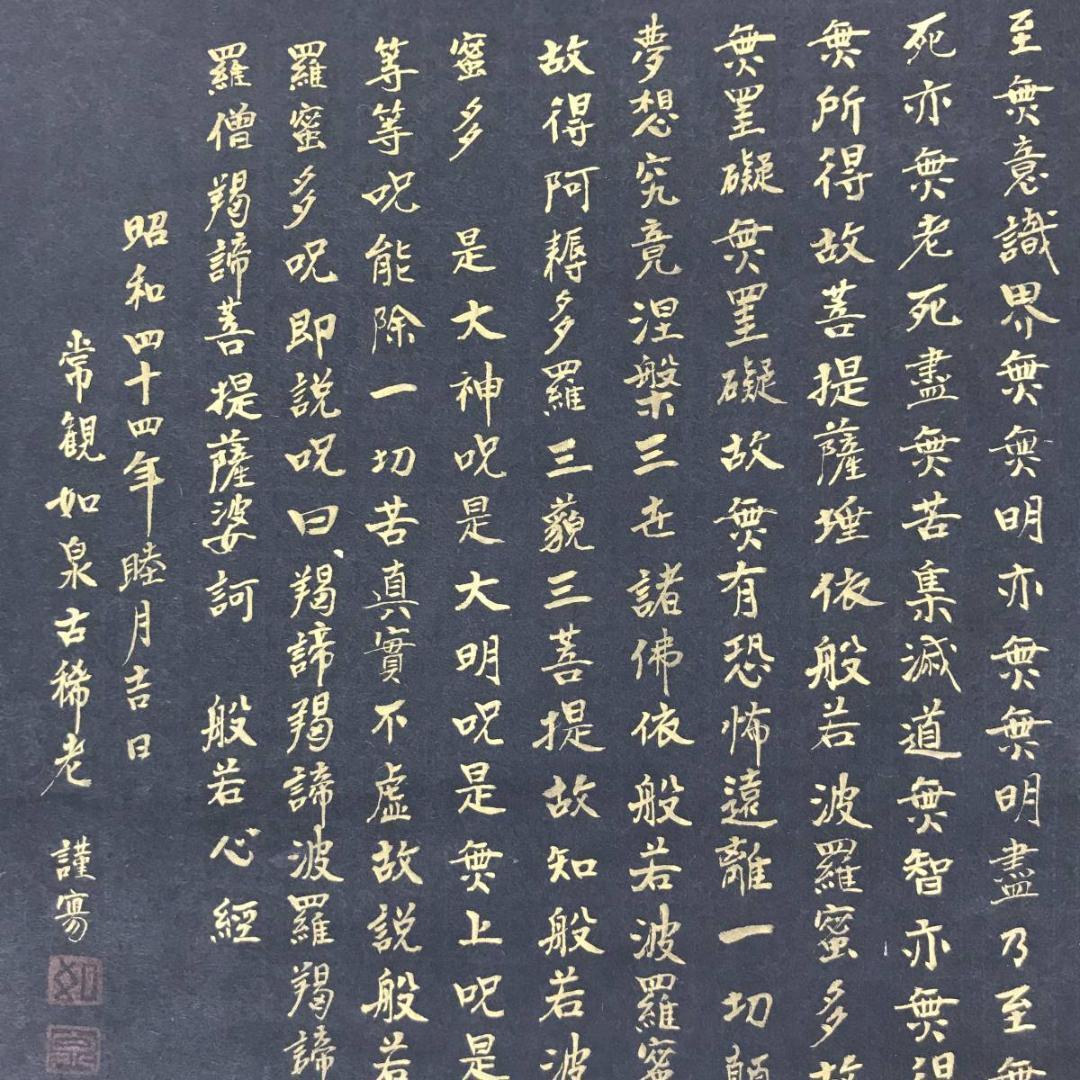 至無意識界無無明亦無無明盡乃至無
死亦無老死盡無苦集滅道無智亦無得
無所得故菩提薩埵依般若波羅蜜多故
無罣礙無罣礙故無有恐怖遠離一切顛
夢想究竟涅槃三世諸佛依般若波羅蜜
故得阿耨多羅三藐三菩提故知般若波
蜜多 是大神呪是大明呪是無上呪是
等等呪能除一切苦真實不虛故説般若
羅蜜多呪即説呪曰羯諦羯諦波羅羯諦
羅僧羯諦菩提薩婆訶 般若心經
昭和四十四年睦月吉日
常観如泉古稀老 謹寫
如
泉